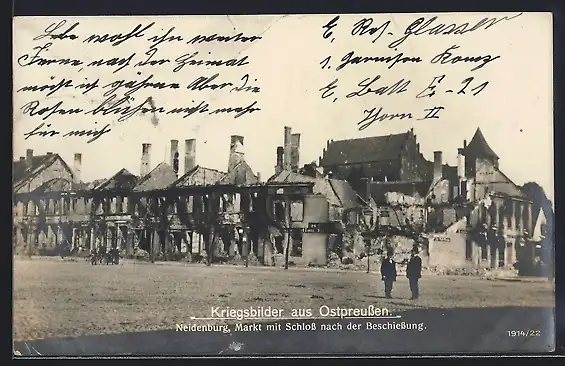 Lebe wohl ihr weiter
Ferne, nach der Heimat
möcht ich gähren Aber die
Rosen blühen nicht mehr
für mich
E, Res. Glasser
1, Garnison Komp
E, Batl E - 21
Thorn II
Kriegsbilder aus Ostpreußen.
Neidenburg, Markt mit Schloß nach der Beschießung.
1914/22